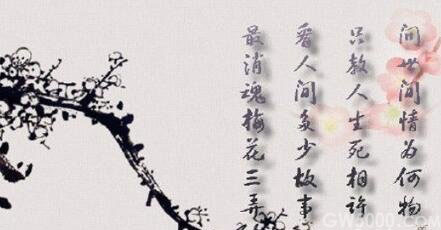 问世间情为何物
只教人生死相许
看人间多少故事
最消魂梅花三弄
GW5000.com